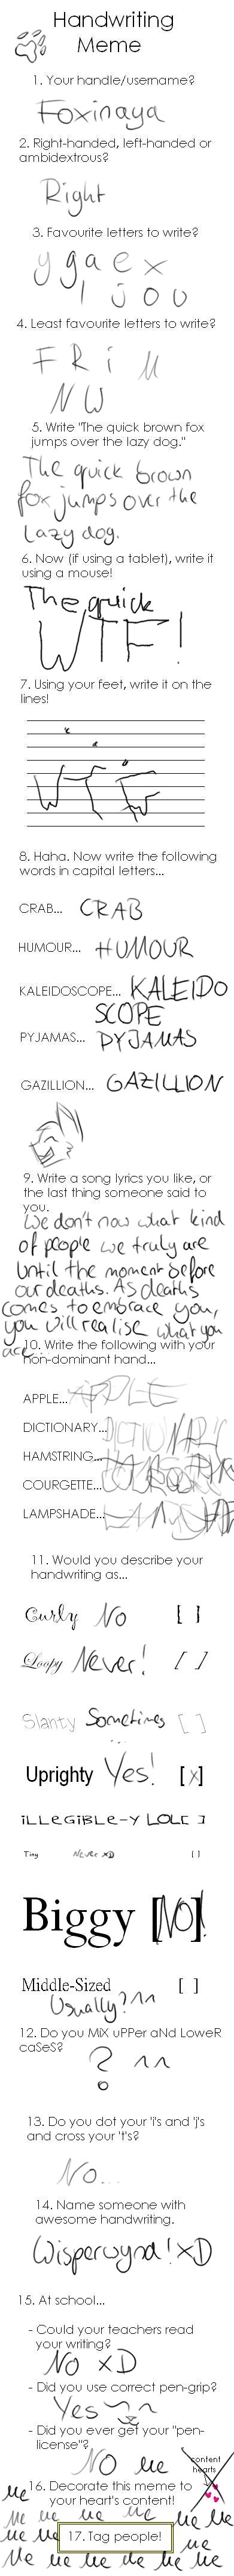 Handwriting
Meme
1. Your handle/username?
Foxinaya
2. Right-handed, left-handed or
ambidextrous?
Right
3. Favourite letters to write?
y g a e x
l j o u
4. Least favourite letters to write?
F R i M
N W
5. Write "The quick brown fox
jumps over the lazy dog."
The quick brown
fox jumps over the
Lazy dog.
6. Now (if using a tablet), write it
using a mouse!
The quick
WTF!
7. Using your feet, write it on the
lines!
WTF
8. Haha. Now write the following
words in capital letters...
CRAB... CRAB
HUMOUR... HUMOUR
KALEIDOSCOPE... KALEIDO
SCOPE
PYJAMAS... PYJAMAS
GAZILLION... GAZILLION
9. Write a song lyrics you like, or
the last thing someone said to
you.
We don't now what kind
of people we truly are
until the moment before
our deaths. As deaths
comes to embrace you,
you will realise what you
are...
10. Write the following with your
non-dominant hand...
APPLE... APPLE
DICTIONARY... DICTIONARY
HAMSTRING...
COURGETTE...
LAMPSHADE...
11. Would you describe your
handwriting as...
Curly No [ ]
Loopy Never! [ ]
Slanty Sometimes [ ]
...
Uprighty Yes! [x]
iLLeGiBLe-y LOL [ ]
Tiny Never xD [ ]
Biggy [NO!]
Middle-Sized [ ]
Usually? ^^
12. Do you MiX uPPer aNd LoweR
caSeS?
? ^^
13. Do you dot your 'i's and 'j's
and cross your 't's?
No...
14. Name someone with
awesome handwriting.
Wisperwynd! xD
15. At school...
- Could your teachers read
your writing?
No xD
- Did you use correct pen-grip?
Yes
- Did you ever get your "pen-
license"?
NO me
content
hearts
16. Decorate this meme to
your heart's content!
me
me me me me me me
me me
17. Tag people!
me
me me me me me me